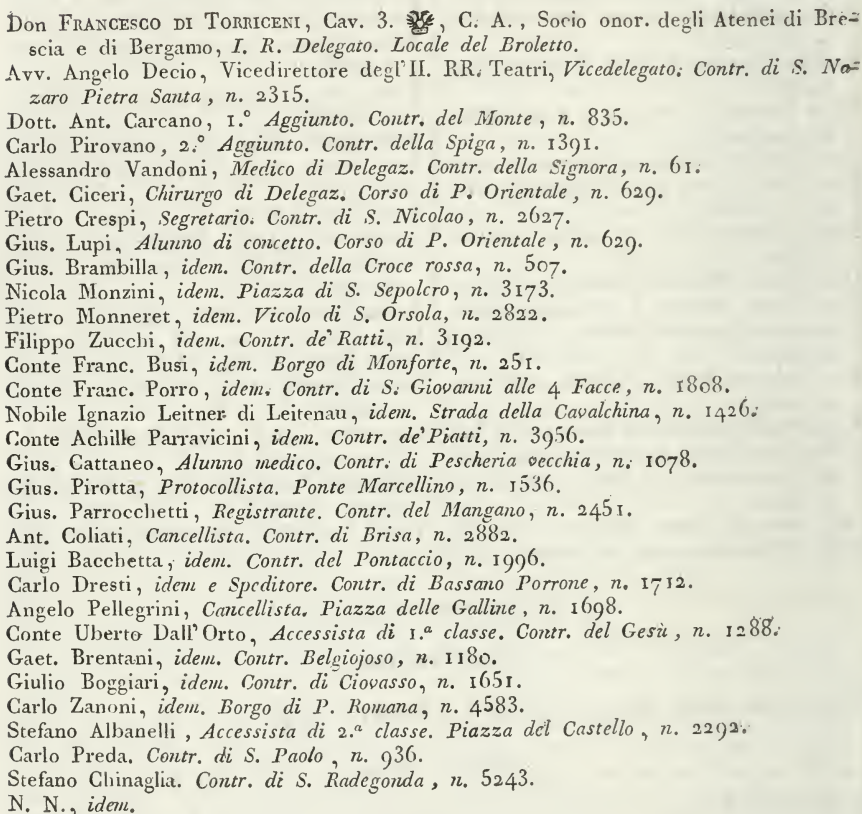 Don FRANCESCO DI TORRICENI, Cav. 3. , C. A., Socio onor. degli Atenei di Bre-
scia e di Bergamo, I. R. Delegato. Locale del Broletto.
Avv. Angelo Decio, Vicedirettore degl'II. RR. Teatri, Vicedelegato. Contr. di S. Na-
zaro Pietra Santa, n. 2315.
Dott. Ant. Carcano, 1.° Aggiunto. Contr. del Monte, n. 835.
Carlo Pirovano, 2.° Aggiunto. Contr. della Spiga, n. 1391.
Alessandro Vandoni, Medico di Delegaz. Contr. della Signora, n. 61.
Gaet. Ciceri, Chirurgo di Delegaz. Corso di P. Orientale, n. 629.
Pietro Crespi, Segretario. Contr. di S. Nicolao, n. 2627.
Gius. Lupi, Alunno di concetto. Corso di P. Orientale, n. 629.
Gius. Brambilla, idem. Contr. della Croce rossa, n. 507.
Nicola Monzini, idem. Piazza di S. Sepolcro, n. 3173.
Pietro Monneret, idem. Vicolo di S. Orsola, n. 2822.
Filippo Zucchi, idem. Contr. de' Ratti, n. 3192.
Conte Franc. Busi, idem. Borgo di Monforte, n. 251.
Conte Franc. Porro, idem. Contr. di S. Giovanni alle 4 Facce, n. 1808.
Nobile Ignazio Leitner di Leitenau, idem. Strada della Cavalchina, n. 1426.
Conte Achille Parravicini, idem. Contr. de' Piatti, n. 3956.
Gius. Cattaneo, Alunno medico. Contr. di Pescheria vecchia, n. 1078.
Gius. Pirotta, Protocollista. Ponte Marcellino, n. 1536.
Gius. Parrocchetti, Registrante. Contr. del Mangano, n. 2451.
Ant. Coliati, Cancellista. Contr. di Brisa, n. 2882.
Luigi Bacchetta, idem. Contr. del Pontaccio, n. 1996.
Carlo Dresti, idem e Speditore. Contr. di Bassano Porrone, n. 1712.
Angelo Pellegrini, Cancellista. Piazza delle Galline, n. 1698.
Conte Uberto Dall'Orto, Accessista di 1.ª classe. Contr. del Gesù, n. 1288.
Gaet. Brentani, idem. Contr. Belgiojoso, n. 1180.
Giulio Boggiari, idem. Contr. di Ciovasso, n. 1651.
Carlo Zanoni, idem. Borgo di P. Romana, n. 4583.
Stefano Albanelli, Accessista di 2.ª classe. Piazza del Castello, n. 2292.
Carlo Preda. Contr. di S. Paolo, n. 936.
Stefano Chinaglia. Contr. di S. Radegonda, n. 5243.
N. N., idem.